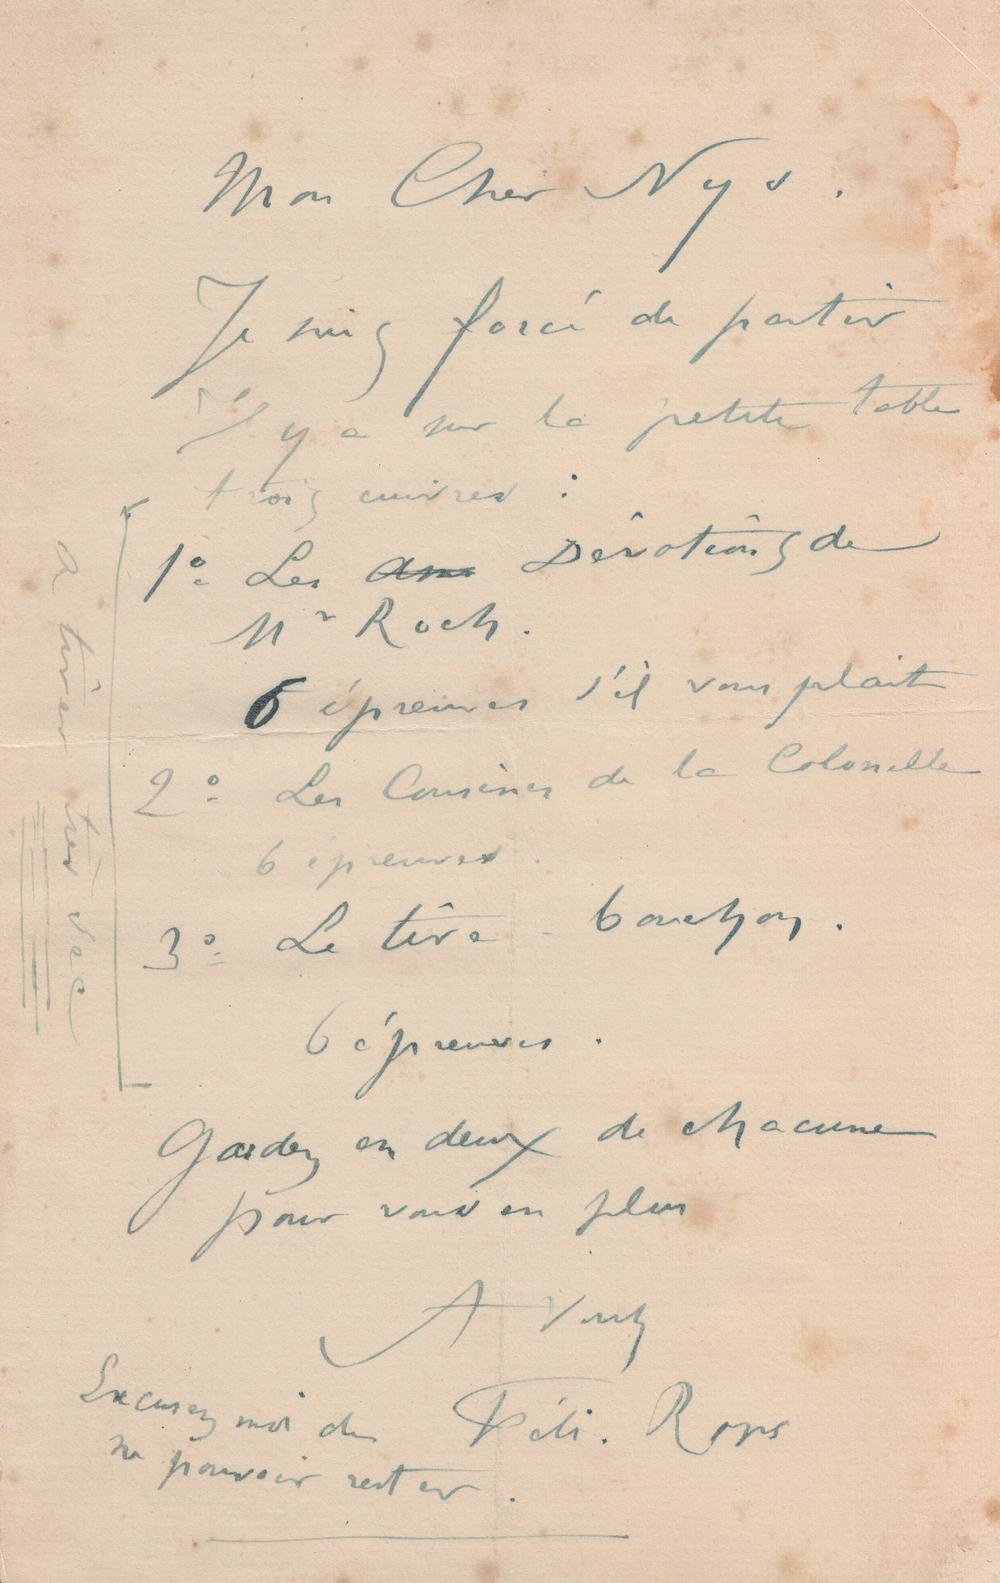 Mon Cher Nys.
Je suis forcé de partir
Il y a sur la petite table
trois cuivres :
1º Les Dévotions de
Mr Roch.
6 épreuves s'il vous plait
2º Les Cousines de la Colonelle
6 épreuves.
3º Le tire-bouchon.
6 épreuves.
a tirer très sec
Gardez en deux de chacune
pour vous en plus
A Vous
Féli. Rops
Excusez moi de
ne pouvoir rester.